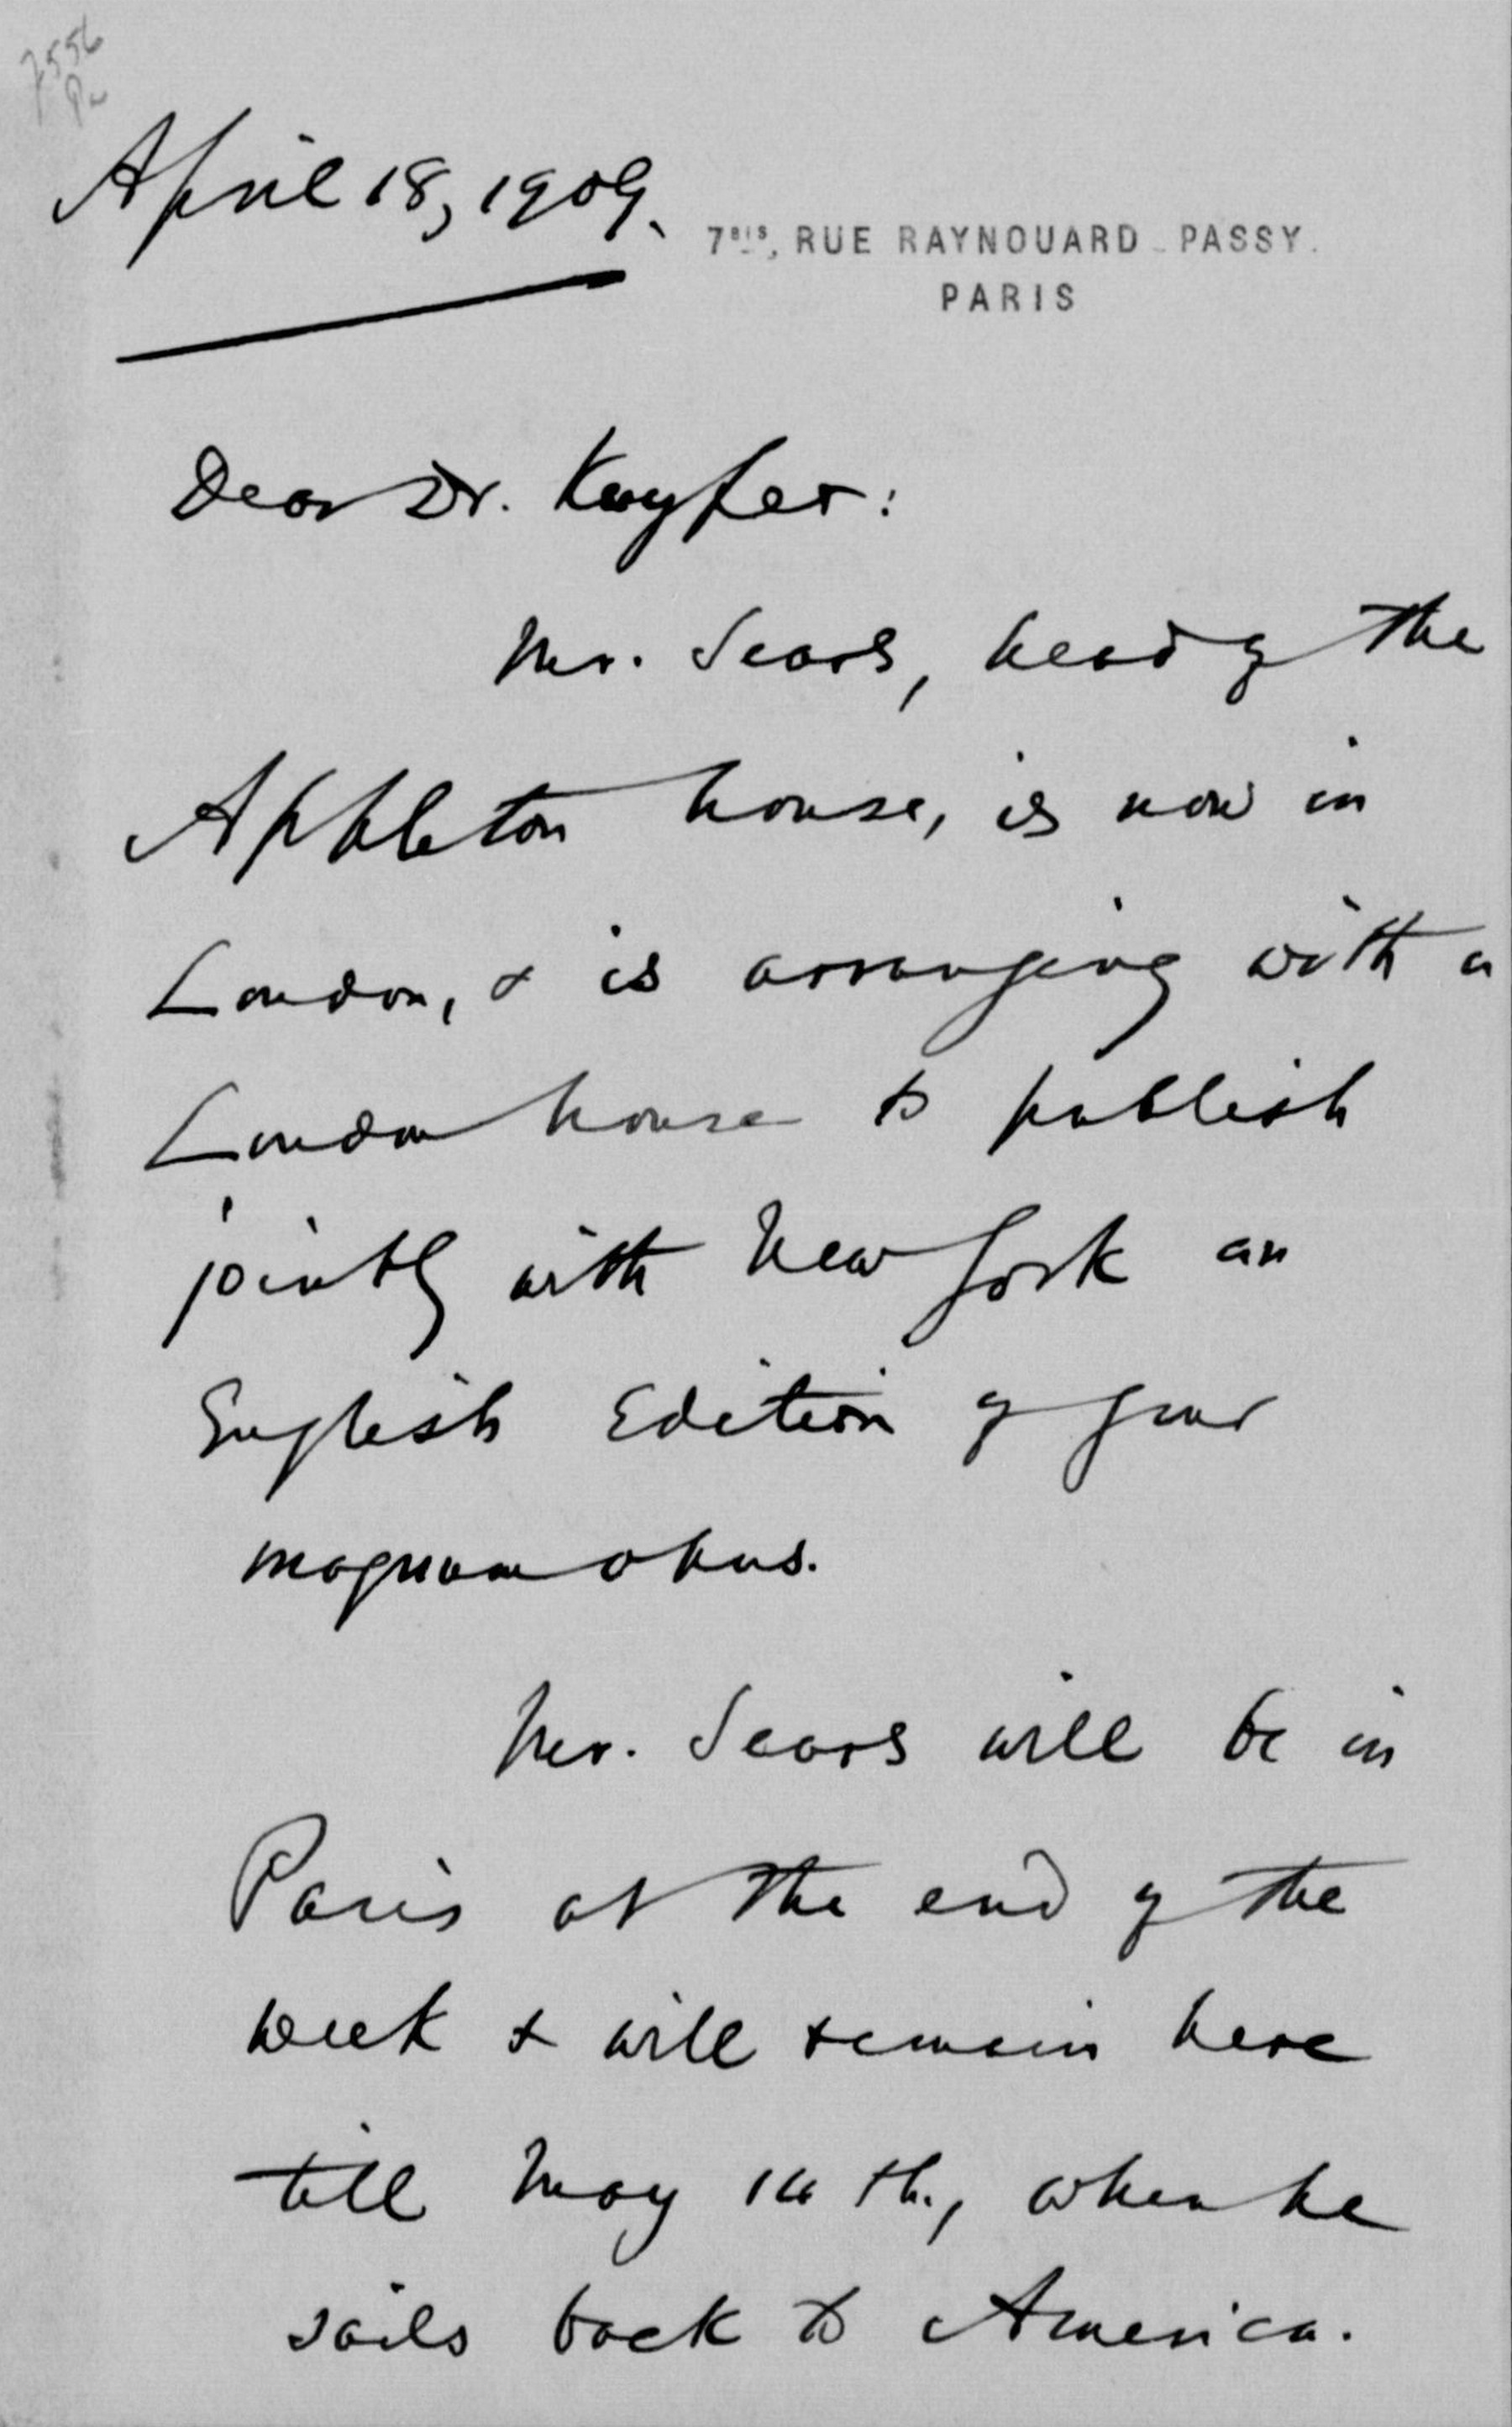 7556
April 18, 1909.
7bis, RUE RAYNOUARD - PASSY.
PARIS
Dear Dr. Kuyper:
Mr. Sears, head of the
Appleton house, is now in
London, & is arranging with a
London house to publish
jointly with New York an
English Edition of your
magnum opus.
Mr. Sears will be in
Paris at the end of the
week & will remain here
till May 14th., when he
sails back to America.